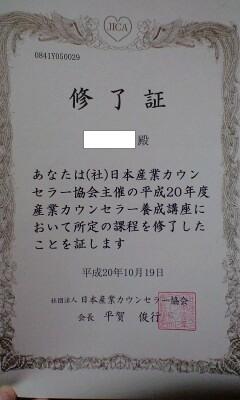 JICA
0841Y050029
修了証
殿
あなたは(社)日本産業カウン
セラー協会主催の平成20年度
産業カウンセラー養成講座に
おいて所定の課程を修了した
ことを証します
平成20年10月19日
社団法人 日本産業カウンセラー協会
会長 平賀 俊行